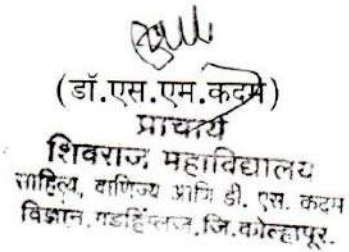 (डॉ.एस.एम.कदम)
प्राचार्य
शिवराज महाविद्यालय
साहित्य, वाणिज्य आणि डी. एस. कदम
विज्ञान, गडहिंग्लज, जि.कोल्हापूर.